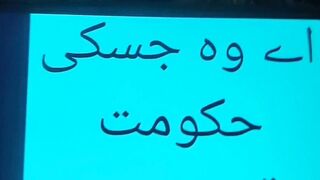 اے وہ جسکی
حکومت